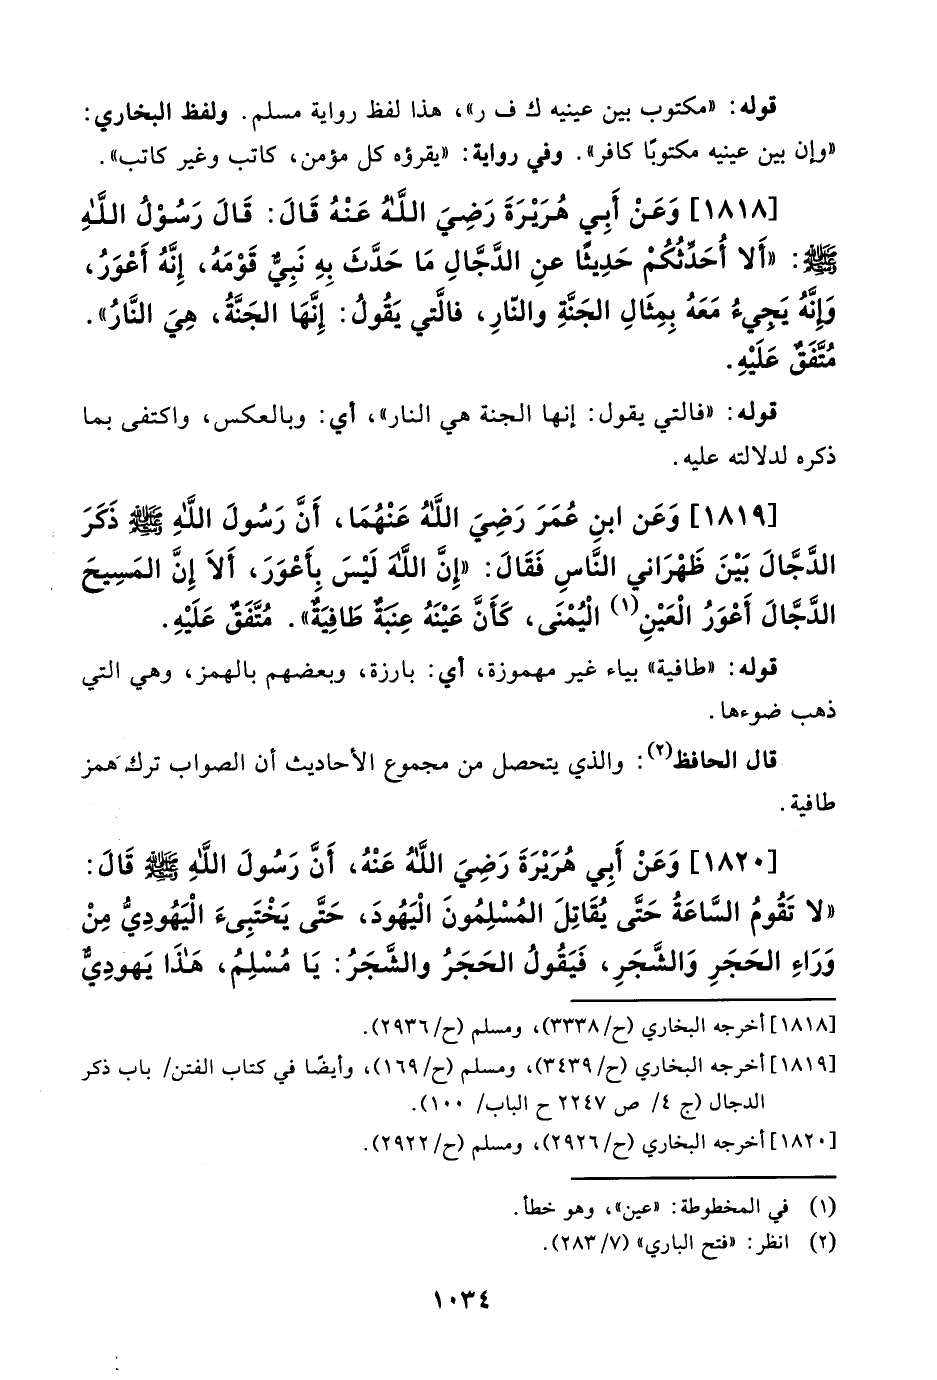 قوله: «مكتوب بين عينيه ك ف ر»، هذا لفظ رواية مسلم. ولفظ البخاري:
«وإن بين عينيه مكتوبًا كافر». وفي رواية: «يقرؤه كل مؤمن، كاتب وغير كاتب».
[١٨١٨] وَعَنْ أَبِي هُرَيْرَةَ رَضِيَ اللَّهُ عَنْهُ قَالَ: قَالَ رَسُوْلُ اللَّهِ
ﷺ: «أَلا أُحَدِّثُكُمْ حَدِيثًا عنِ الدَّجَّالِ مَا حَدَّثَ بِهِ نَبِيٌّ قَوْمَهُ، إنَّهُ أَعْوَرُ،
وَإِنَّهُ يَجِيءُ مَعَهُ بِمِثَالِ الجَنَّةِ والنّارِ، فالَّتي يَقُولُ: إنَّهَا الجَنَّةُ، هِيَ النَّارُ».
مُتَّفَقٌ عَلَيْهِ.
قوله: «فالتي يقول: إنها الجنة هي النار»، أي: وبالعكس، واكتفى بما
ذكره لدلالته عليه.
[١٨١٩] وَعَن ابنِ عُمَرَ رَضِيَ اللَّهُ عَنْهُمَا، أَنَّ رَسُولَ اللَّهِ ﷺ ذَكَرَ
الدَّجَّالَ بَيْنَ ظَهْرَاني النَّاسِ فَقَالَ: «إِنَّ اللَّهَ لَيْسَ بِأَعْوَرَ، أَلاَ إِنَّ المَسِيحَ
الدَّجَّالَ أَعْوَرُ الْعَيْنِ(١) الْيُمْنَى، كَأَنَّ عَيْنَهُ عِنَبَةٌ طَافِيَةٌ». مُتَّفَقٌ عَلَيْهِ.
قوله: «طافية» بياء غير مهموزة، أي: بارزة، وبعضهم بالهمز، وهي التي
ذهب ضوءها.
قال الحافظ(٢): والذي يتحصل من مجموع الأحاديث أن الصواب ترك همز
طافية.
[١٨٢٠] وَعَنْ أَبِي هُرَيْرَةَ رَضِيَ اللَّهُ عَنْهُ، أَنَّ رَسُولَ اللَّهِ ﷺ قَالَ:
«لا تَقُومُ السَّاعَةُ حَتَّى يُقَاتِلَ المُسْلِمُونَ الْيَهُودَ، حَتَّى يَخْتَبِىءَ الْيَهُودِيُّ مِنْ
وَرَاءِ الحَجَرِ وَالشَّجَرِ، فَيَقُولُ الحَجَرُ والشَّجَرُ: يَا مُسْلِمُ، هَذَا يَهودِيٌّ
[١٨١٨] أخرجه البخاري (ح/٣٣٣٨)، ومسلم (ح/٢٩٣٦).
[١٨١٩] أخرجه البخاري (ح/٣٤٣٩)، ومسلم (ح/١٦٩)، وأيضًا في كتاب الفتن/ باب ذكر
الدجال (ج ٤/ ص ٢٢٤٧ ح الباب/ ١٠٠).
[١٨٢٠] أخرجه البخاري (ح/٢٩٢٦)، ومسلم (ح/٢٩٢٢).
(١) في المخطوطة: «عين»، وهو خطأ.
(٢) انظر: «فتح الباري» (٧/ ٢٨٣).
١٠٣٤